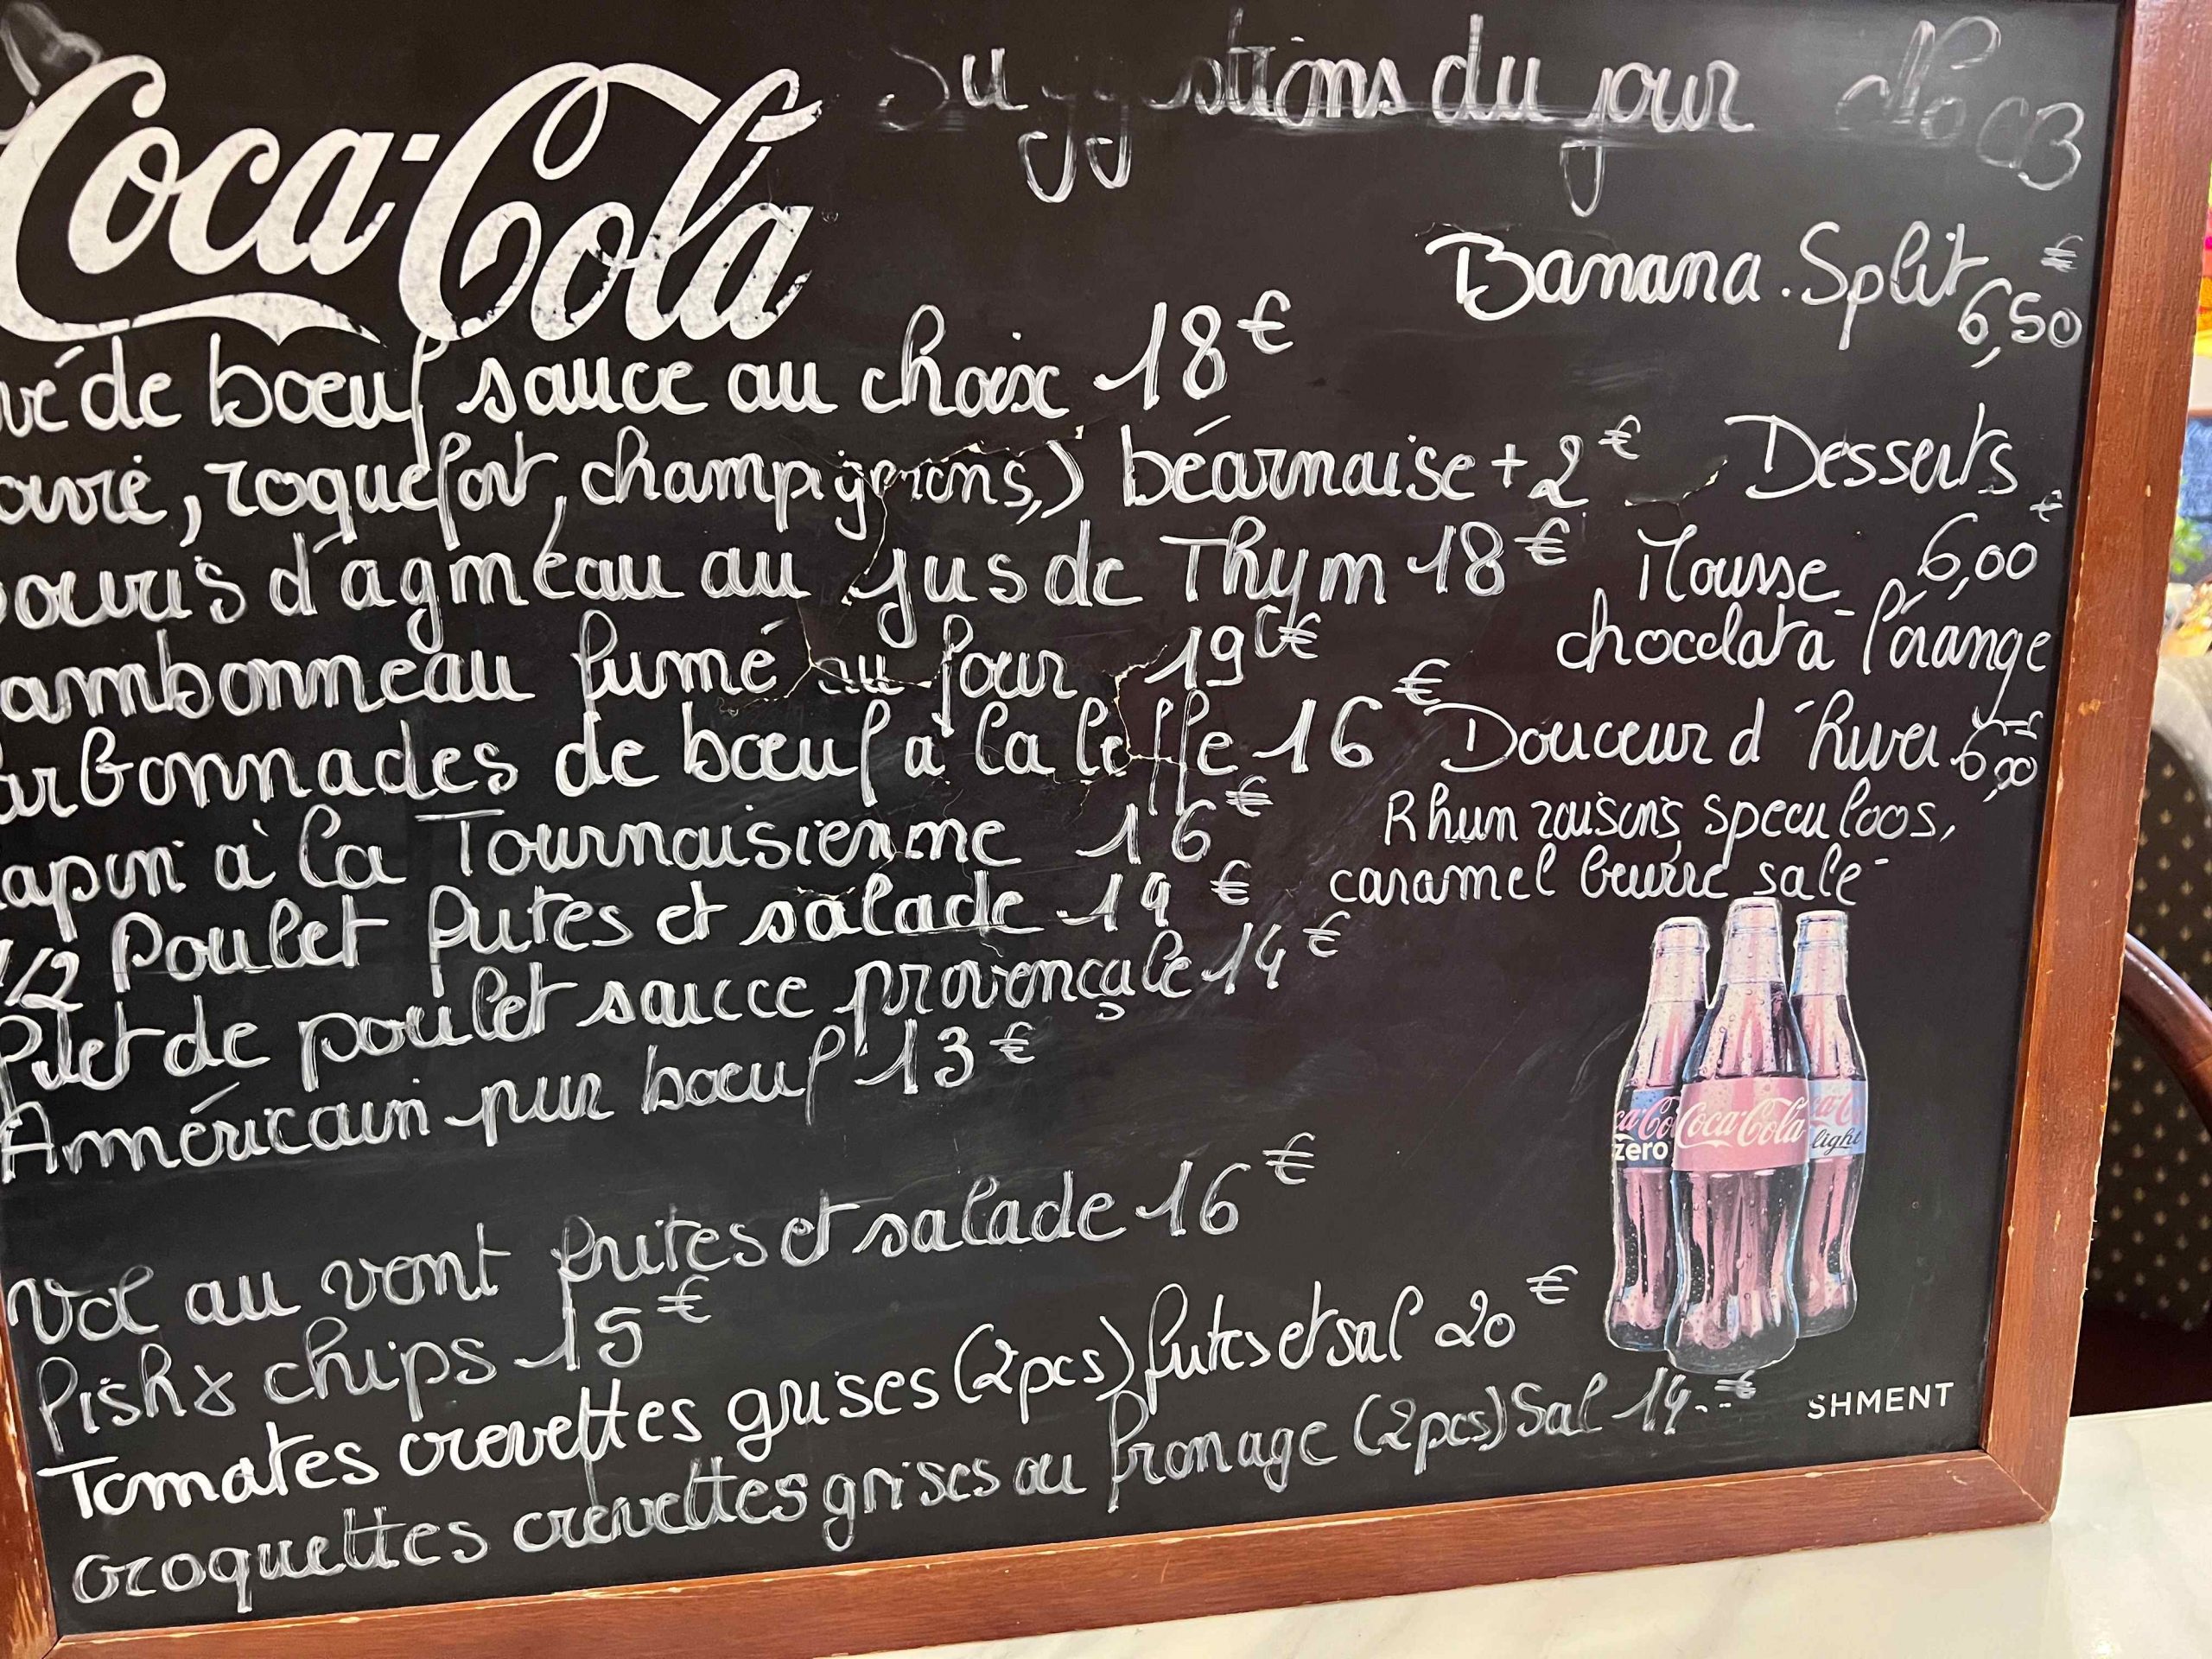 Coca-Cola
Suggestions du jour
Banana.Split
6,50 €
vé de bœuf sauce au choix 18€
oivre, roquefort, champignons,) béarnaise + 2€
ouris d'agméau au jus de Thym 18€
ambonneau fumé au four 19€
arbonnades de bœuf à la leffe 16€
apin à la Tournaisienne 16€
1/2 Poulet frites et salade 19€
filet de poulet sauce provençale 14€
Américain pur bœuf 13€
Vol au vent frites et salade 16€
fish & chips 15€
Tomates crevettes grises (2pcs) frites et sal 20€
croquettes crevettes grises ou fromage (2pcs) Sal 14€
Desserts
Mousse 6,00 €
chocolat à l'orange
Douceur d'hiver 6,00 €
Rhum raisins speculoos,
caramel beurre salé
ca-Co zero
Coca-Cola
ca-C light
SHMENT